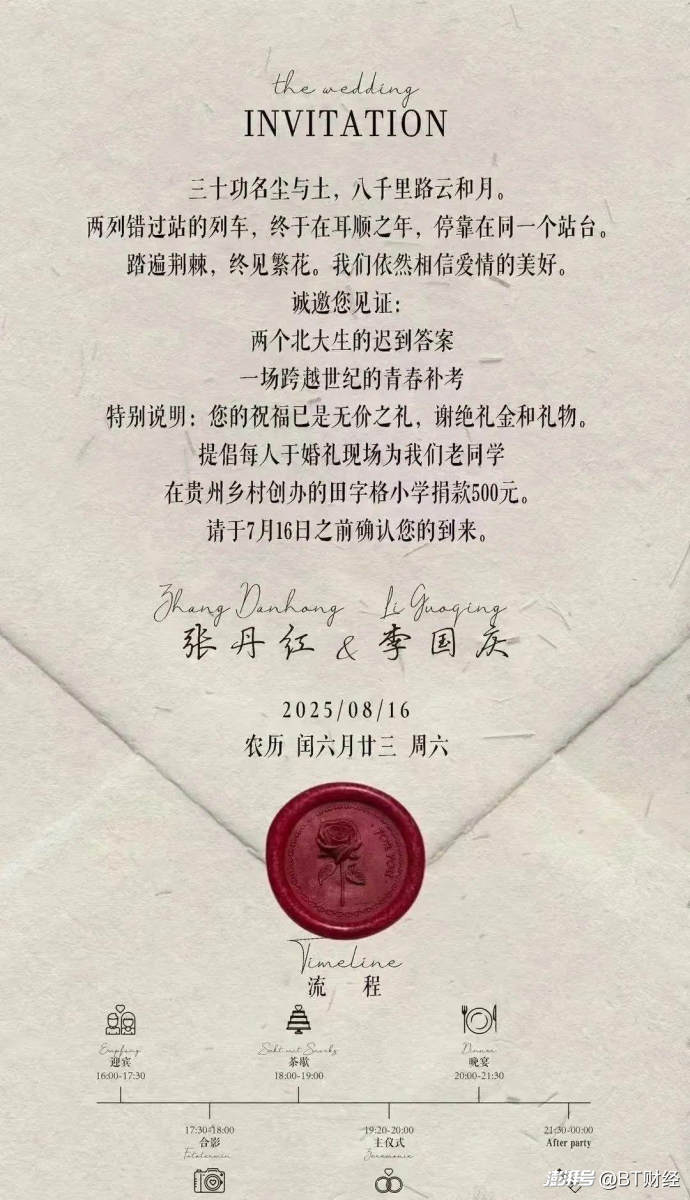 the wedding
INVITATION
三十功名尘与土，八千里路云和月。
两列错过站的列车，终于在耳顺之年，停靠在同一个站台。
踏遍荆棘，终见繁花。我们依然相信爱情的美好。
诚邀您见证：
两个北大生的迟到答案
一场跨越世纪的青春补考
特别说明：您的祝福已是无价之礼，谢绝礼金和礼物。
提倡每人于婚礼现场为我们老同学
在贵州乡村创办的田字格小学捐款500元。
请于7月16日之前确认您的到来。
Zhang Danhong Li Guoqing
张丹红 & 李国庆
2025/08/16
农历 闰六月廿三 周六
Timeline
流 程
Empfang
迎宾
16:00-17:30
Sekt mit Snacks
茶歇
18:00-19:00
Dinner
晚宴
20:00-21:30
17:30-18:00
合影
Fototermin
19:20-20:00
主仪式
Zeremonie
21:30-00:00
After party
澎湃号 @BT财经